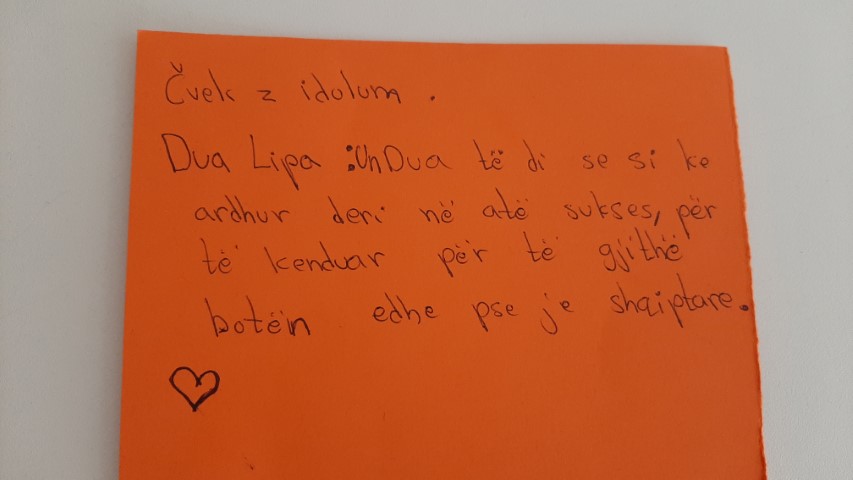 Čvek z idolum.
Dua Lipa : Un Dua të di se si ke
ardhur deri në atë sukses, për
të kenduar për të gjithë
botën edhe pse je shqiptare.